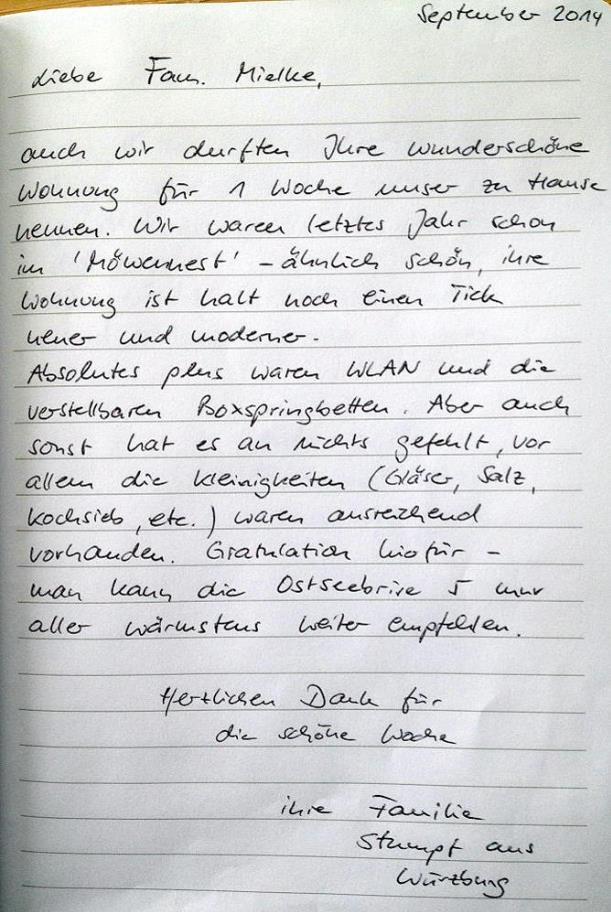 September 2014
Liebe Fam. Mielke,
auch wir durften Ihre wunderschöne
Wohnung für 1 Woche unser zu Hause
nennen. Wir waren letztes Jahr schon
im 'Möwennest' - ähnlich schön, ihre
Wohnung ist halt noch einen Tick
neuer und moderner.
Absolutes plus waren WLAN und die
verstellbaren Boxspringbetten. Aber auch
sonst hat es an nichts gefehlt, vor
allem die Kleinigkeiten (Gläser, Salz,
Kochsieb, etc.) waren ausreichend
vorhanden. Gratulation hiefür -
man kann die Ostseebrise 5 nur
aller wärmstens weiter empfehlen.
Herzlichen Dank für
die schöne Woche
ihre Familie
Stumpf aus
Würzburg